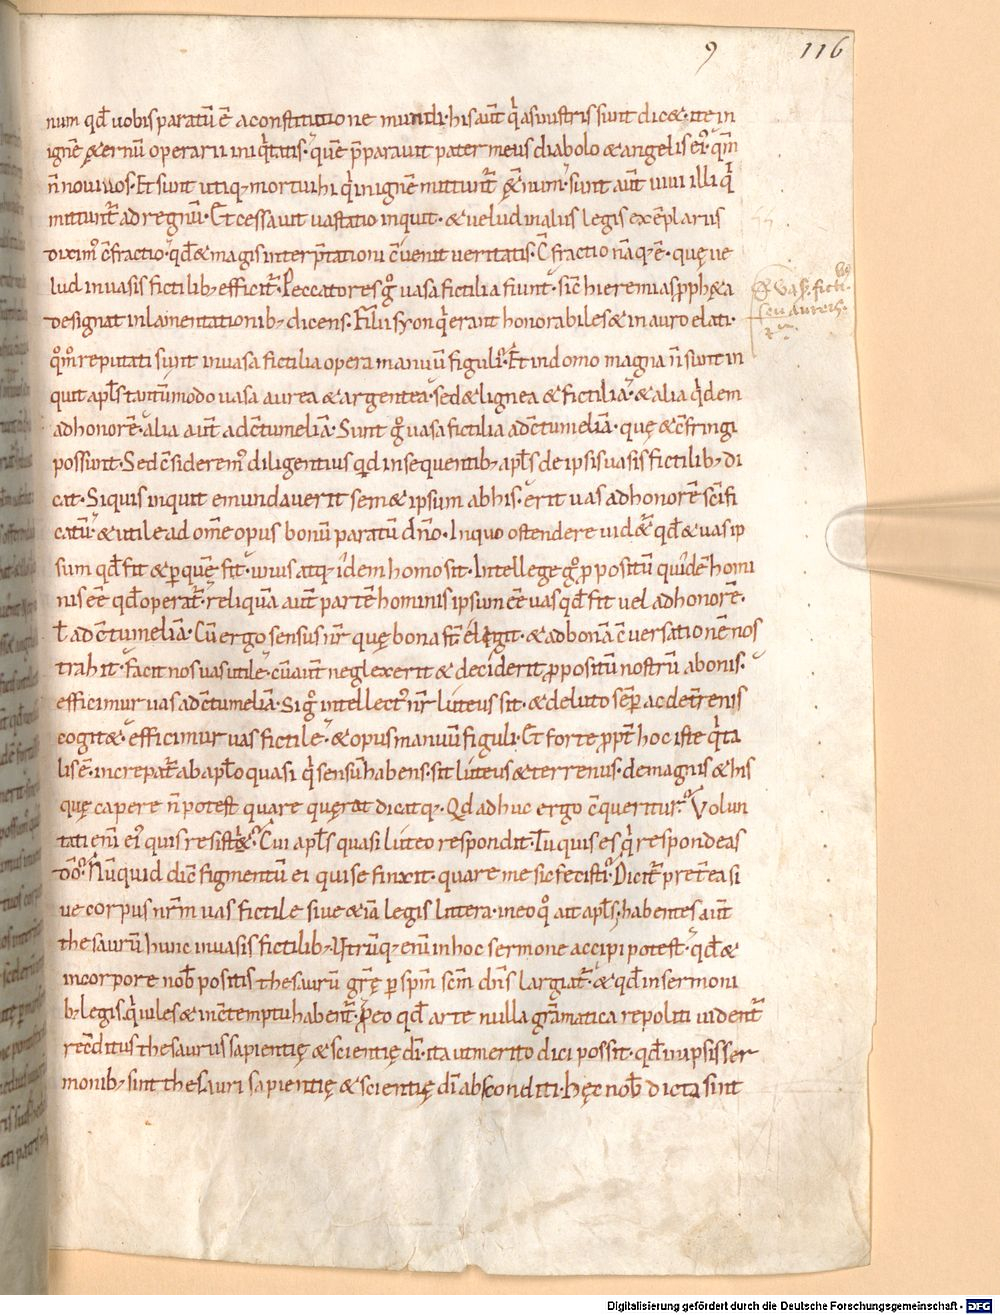 9 116
num qd̄ uobis paratū ē a constitutione mundi· his aūt q̇ a sinistris sunt dicet· ite in
ignē ęternū operarii iniq̇tatis· quē p̄parauit pater meus diabolo & angelis ei᷒· qm̄
n̄ noui uos· Et sunt utiq; mortui hi q̇ in ignē mittunt̄ ęt̄num· sunt aūt uiui illi q̇
mittunt̄ ad regnū· Et cessauit uastatio inquit· & uelud in aliis legis exēplariis
dixim᷒ c̄fractio· qd̄ & magis interp̄tationi c̄uenit ueritatis· C̄fractio nāq; ē· quę ue
lud in uasis fictilib; efficit̄· Peccatores g᷒ uasa fictilia fiunt· sic̄ hieremias ꝓph&a
designat in lamentationib; dicens· Filii syon q̇ erant honorabiles & in auro elati·
& vas fictile
seu aureū
q᷒m᷒ reputati sunt in uasa fictilia opera manuū figuli· Et in domo magna n̄ sunt in
quit apl̄s tantūmodo uasa aurea & argentea· sed & lignea & fictilia· & alia q̇dem
ad honorē· alia aūt ad c̄tumeliā· Sunt g᷒ uasa fictilia ad c̄tumeliā· quę & c̄fringi
possunt· Sed c̄siderem᷒ diligentius quid in sequentib; apl̄s de ipsis uasis fictilib; di
cat· Siquis inquit emundauerit semet ipsum ab his· erit uas ad honorē sc̄ifi
catū· & utile ad om̄e opus bonū paratū dn̄o· In quo ostendere uidet̄ qd̄ & uas ip
sum qd̄ fit & ꝑ quē fit· unus atq; idem homo sit· Intellege g᷒ ꝓpositū quidē homi
nis ēē qd̄ operat̄· reliquā aūt partē hominis ipsum ēē uas qd̄ fit uel ad honorē·
ł ad c̄tumeliā· Cū ergo sensus nr̄ quę bona st̄ elegit· & ad bonā c̄uersationē nos
trahit· facit nos uas utile· cū aūt neglexerit & deciderit ꝓpositū nostrū a bonis·
efficimur uas ad c̄tumeliā· Si g᷒ intellect᷒ nr̄ luteus sit· & de luto sēp ac de tr̄enis
cogitet· efficimur uas fictile· & opus manuū figuli· Et forte ꝓpt̄ hoc iste q̇ ta
lis ē· increpat̄ ab apl̄o quasi q̇ sensū habens· sit luteus & terrenus· de magnis & his
quę capere n̄ potest quare quęrat dicatq;· Qd adhuc ergo c̄queritur· Volun
tati eni ei᷒ quis resistet· Cui apl̄s quasi luteo respondit· Tu quis es q̇ respondeas
dō· Nūquid dic̄ figmentū ei qui se finxit· quare me sic fecisti· Dicit̄ pret̄ea si
ue corpus nr̄m uas fictile siue & iā legis littera· in eo q᷒ ait apl̄s· habentes aūt
thesaurū hunc in uasis fictilib;· Utrūq; eni in hoc sermone accipi potest· qd̄ &
in corpore nob̄ positis thesaurū gr̄ę ꝑ spm̄ scm̄ dn̄s largiat̄· & qd̄ in sermoni
b; legis· q̇ uiles & in c̄temptu habent̄· Pro eo qd̄ arte nulla grāmatica repoliti uident̄
rec̄ditus thesaurus sapientię & scientię dī· ita ut merito dici possit· qd̄ in ipsis ser
monib; sint thesauri sapientię & scientię dī absconditi· hęc nob̄ dicta sint
Digitalisierung gefördert durch die Deutsche Forschungsgemeinschaft - DFG